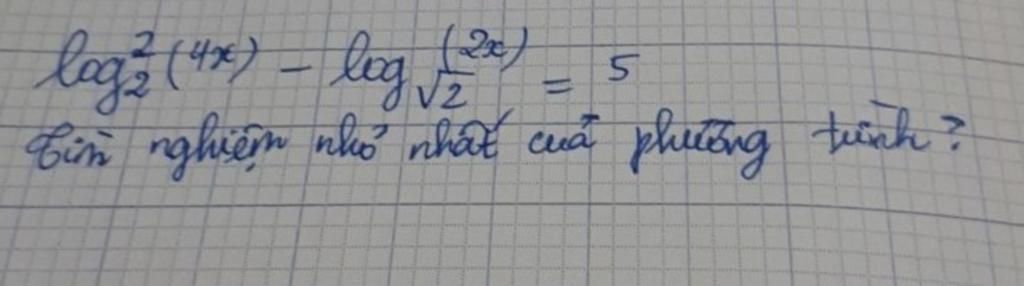 log₂²(4x) − log_√2 (2x) = 5
Tìm nghiệm nhỏ nhất của phương trình?